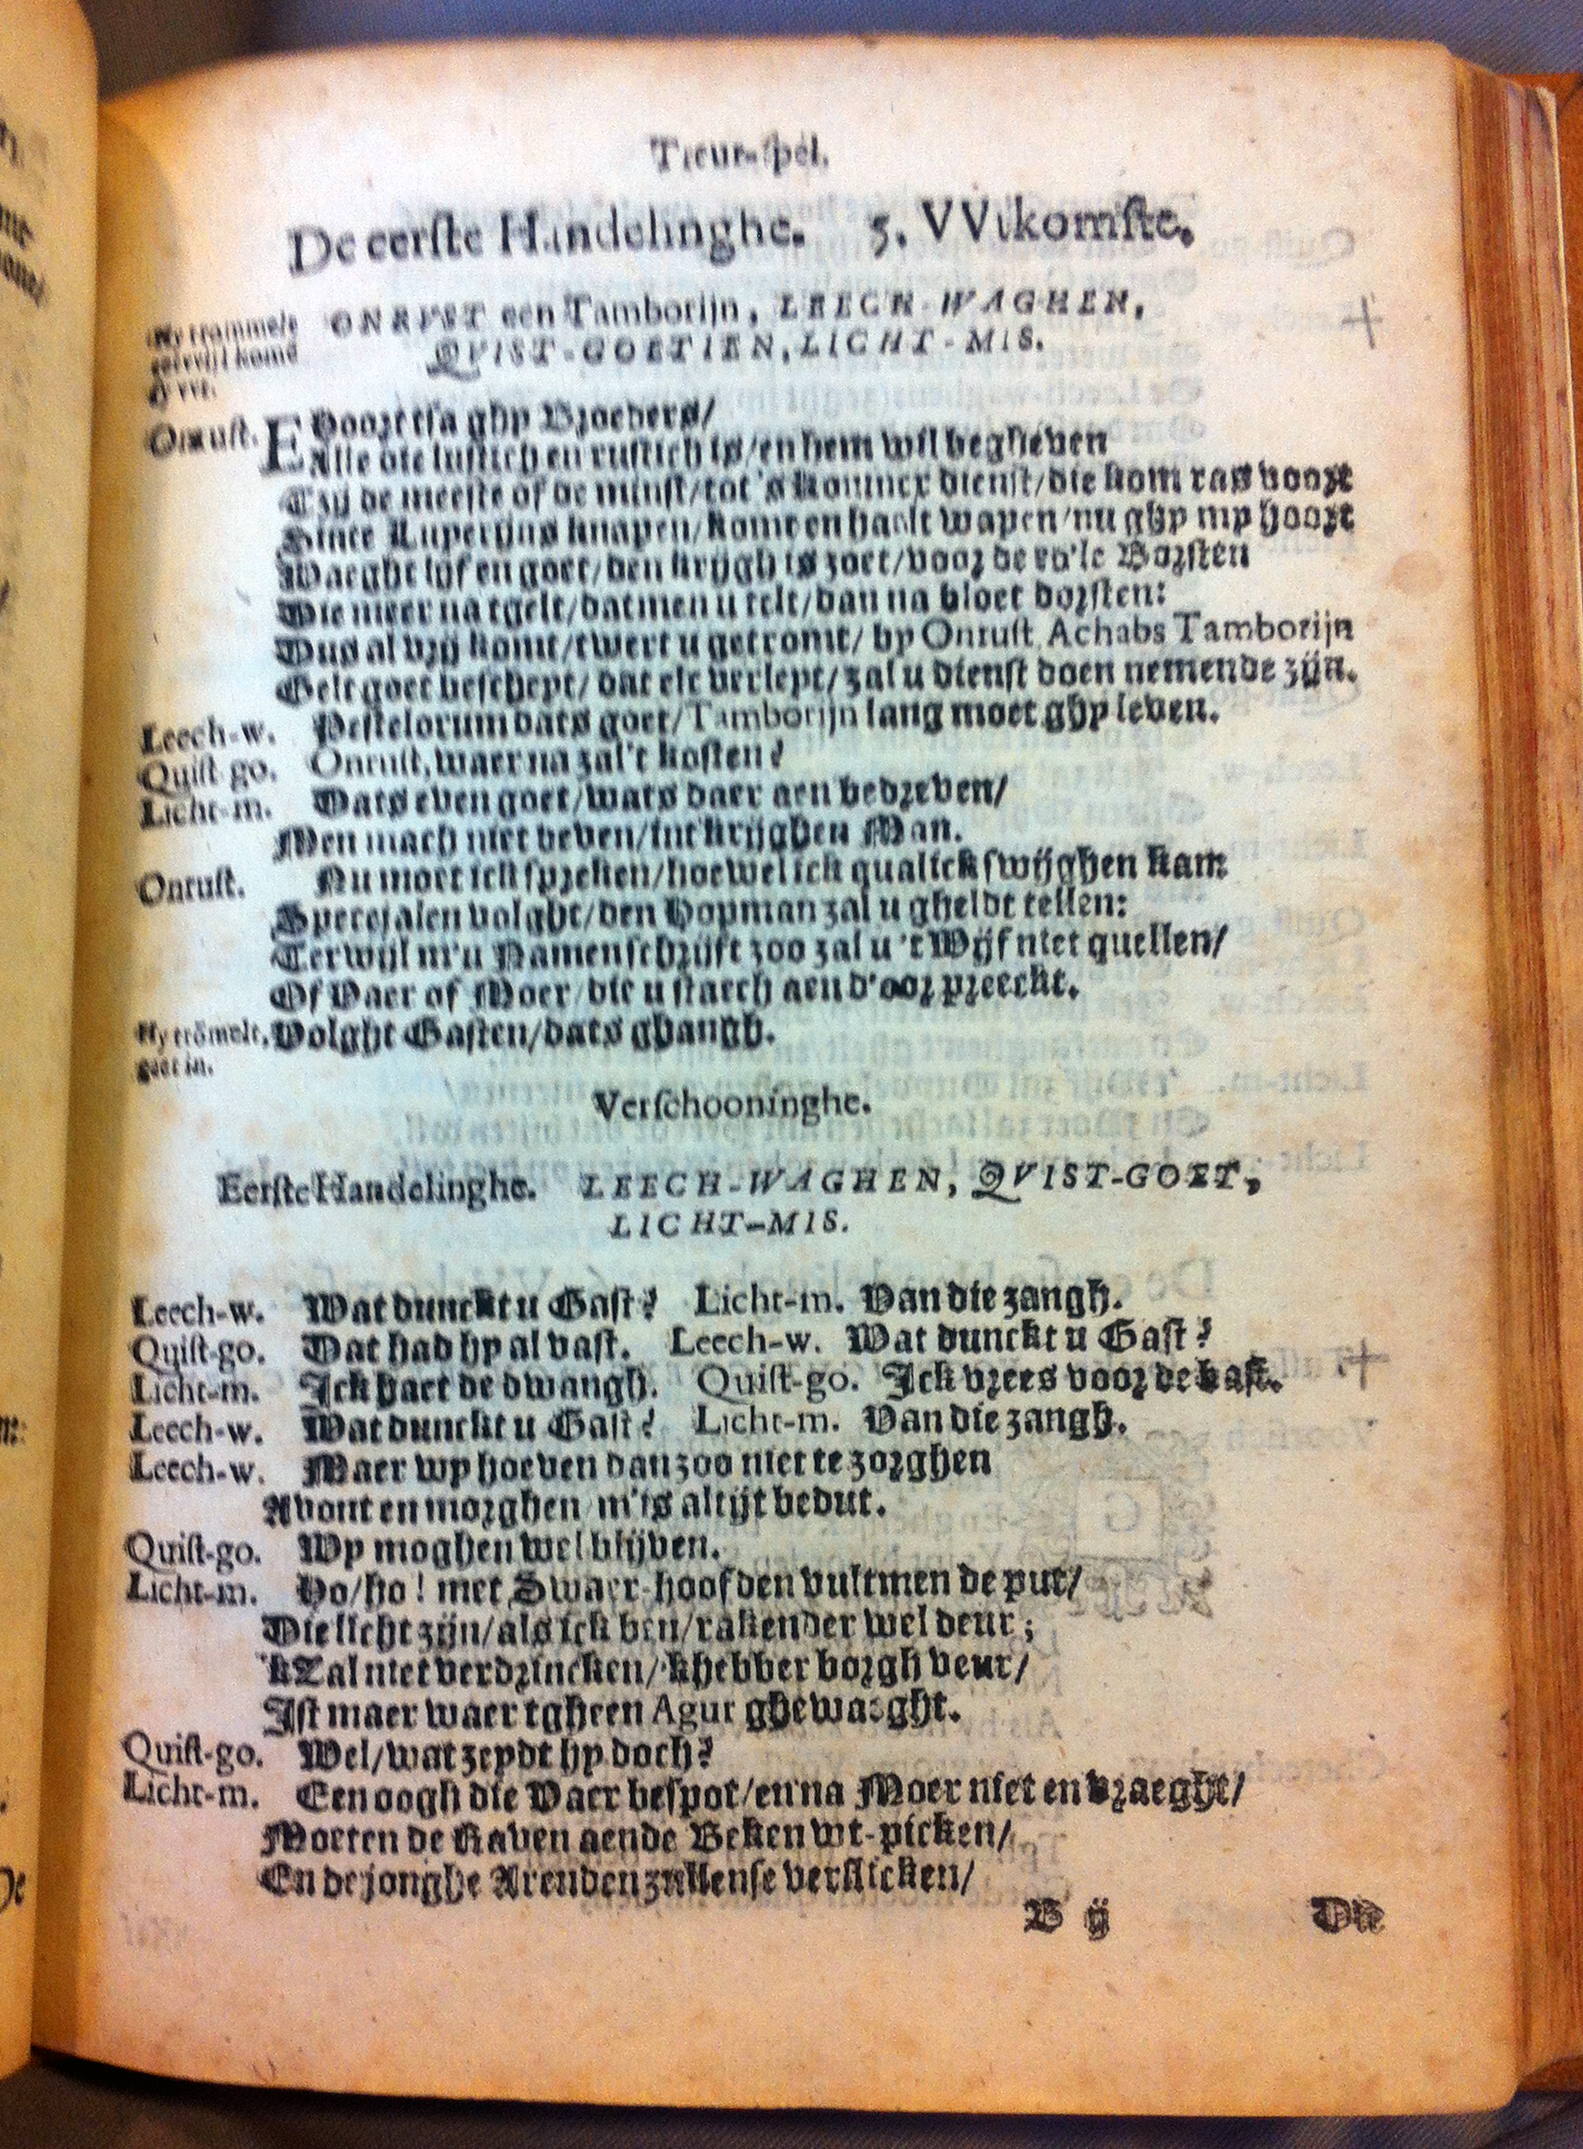 Treur-spel.
De eerste Handelinghe. 5. VVtkomste.
Hy trommele
terwijl komd
dy vvt.
ONRVST een Tamborijn, LEECH-WAGHEN,
QVIST-GOETIEN, LICHT-MIS.
Onrust. EHoort tsa ghy Broeders/
Alle die lustich en rustich is/en hem wil begheven
Tzy de meeste of de minst/tot 's Konincx dienst/die kom ras voort
Since Lupertijns knapen/komt en haelt wapen/nu ghy my hoort
Waeght lijf en goet/den krijgh is zoet/voor de vo'le Borsten
Die meer na tgelt/datmen u telt/dan na bloet dorsten:
Dus al vry komt/twert u getromt/ by Onrust Achabs Tamborijn
Gelt goet beschept/ dat elc verlept/zal u dienst doen nemende zijn.
Leech-w. Pestelorum dats goet/Tamborijn lang moet ghy leven.
Quist go. Onrust, waer na zal't kosten?
Licht-m. Dats even goet/wats daer aen bedreven/
Men mach niet beven/int krijghen Man.
Onrust. Nu moet ick spreken/hoewel ick qualick swijghen kan:
Specejalen volght/den Hopman zal u gheldt tellen:
Terwijl m'u Namen schrijft zoo zal u 't Wijf niet quellen/
Of Vaer of Moer die u staech aen d'oor preeckt.
Hy trõmelt,
gaet in.
Volght Gasten/dats ghangh.
Verschooninghe.
Eerste Handelinghe. LEECH-WAGHEN, QVIST-GOET,
LICHT-MIS.
Leech-w. Wat dunckt u Gast? Licht-m. Van die zangh.
Quist-go. Dat had hy al vast. Leech-w. Wat dunckt u Gast?
Licht-m. Ick haet de dwangh. Quist-go. Ick vrees voor de bast.
Leech-w. Wat dunckt u Gast? Licht-m. Van die zangh.
Leech-w. Maer wy hoeven dan zoo niet te zorghen
Avont en morghen m'is altijt bedut.
Quist-go. Wy moghen wel blijven.
Licht-m. Ho/ho! met Swaer-hoofden vultmen de put/
Die licht zijn/als ick ben/rakender wel deur;
'kZal niet verdrincken/'khebber borgh veur/
Ist maer waer tgheen Agur ghewaeght.
Quist-go. Wel/wat zeydt hy doch?
Licht-m. Een oogh die Vaer bespot/en na Moer niet en vraeght/
Moeten de Raven aende Beken wt-picken/
En de jonghe Arenden zullense verslicken/
B ij Die